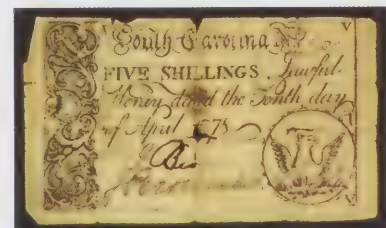 South Carolina V
FIVE SHILLINGS. Lawful
Money dated the Tenth day
of April 1775